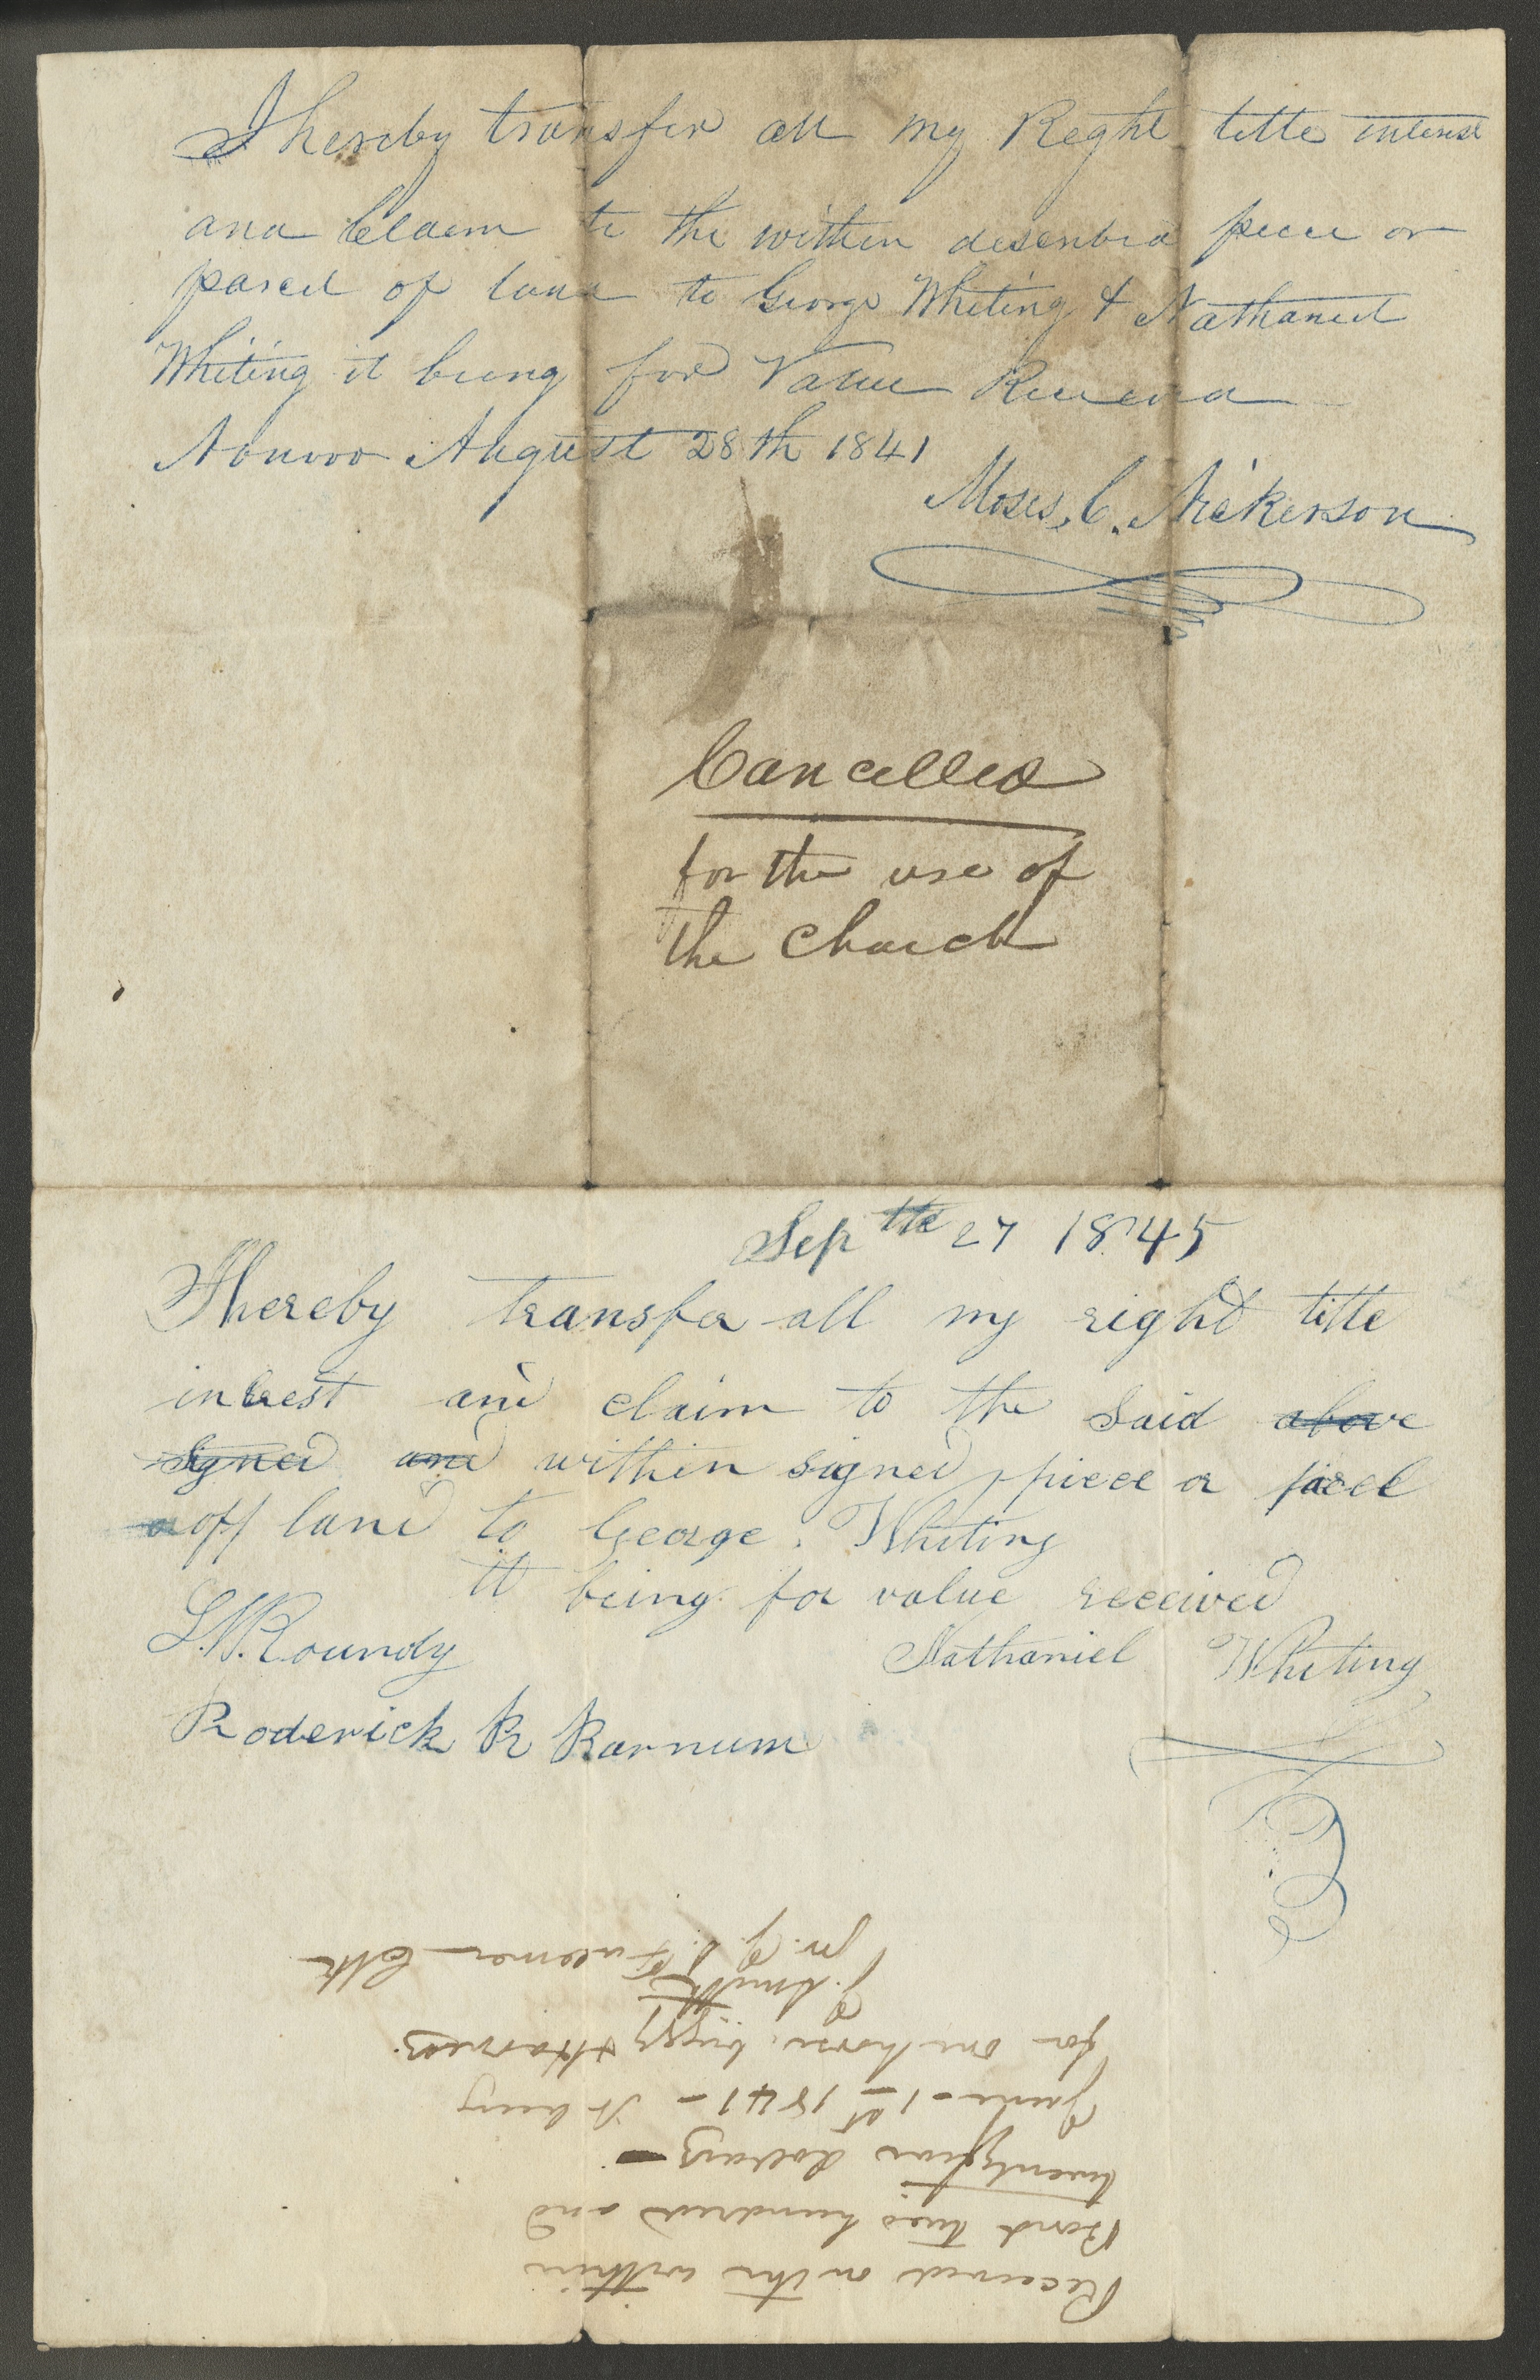 I hereby transfer all my Reght tette interest
and Claem to the within described peece or
parcel of land to George Whiting & Nathaniel
Whiting it being for Value Receeved
Nauvoo August 28th 1841
Moses, C. Nickerson
Cancelled
for the use of
the Church
Sep tth 27 1845
I hereby transfer all my right title
intrest and claim to the said above
signed and within signed piece or parcel
off land to George. Whiting
it being for value received
L. W. Roundy
Nathaniel Whiting
Roderick R Barnum
Received on the within
Bond two hundred and
twentyfive dollars—
June 1st 1841 - It being
for one horse, buggy & Harness.
J. Smith
pr. J. S. Fullmer Clk